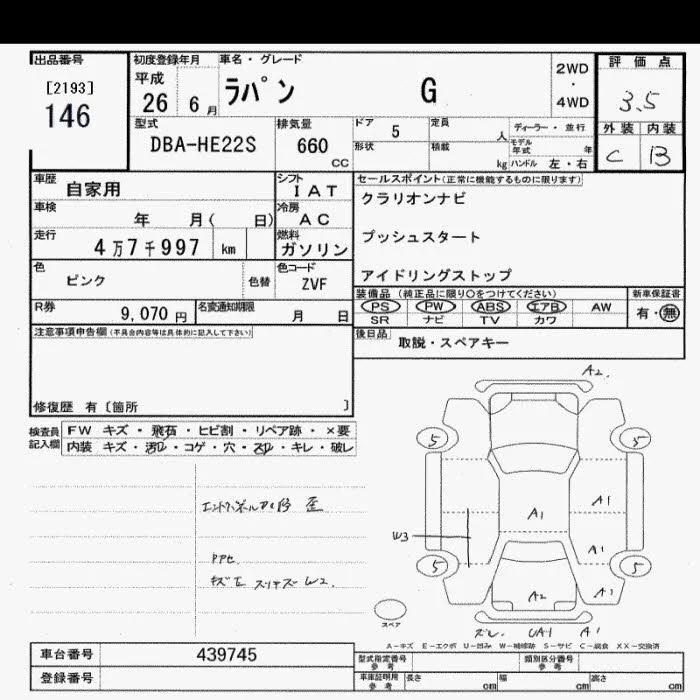 出品番号
[2193]
146
初度登録年月
平成
26 6 月
車名・グレード
ラパン G
2WD
・
4WD
評価点
3.5
外装 内装
C B
型式
DBA-HE22S
排気量
660
CC
ドア 5
定員 人
ディーラー・並行
形状
積載 kg
モデル年式 年
ハンドル 左・右
車歴 自家用
シフト IAT
車検 年 月( 日)
冷房 AC
走行 4万7千997 km
燃料 ガソリン
色 ピンク
色替
色コード ZVF
R券 9,070 円
名変通知期限 月 日
セールスポイント(正常に機能するものに限ります)
クラリオンナビ
プッシュスタート
アイドリングストップ
装備品(純正品に限り○をつけてください)
新車保証書
PS PW ABS エアB AW
SR ナビ TV カワ
有・無
後日品 取説・スペアキー
注意事項申告欄(不具合内容等は具体的に記入して下さい)
修復歴 有〔箇所 〕
検査員記入欄
FW キズ・飛石・ヒビ割・リペア跡・×要
内装 キズ・汚レ・コゲ・穴・スレ・キレ・破レ
歪
W2
A2
5 5
A1 A1
W3
A1
5 5
A2 A1
UA1 A1
スペア
A－キズ E－エクボ U－凹み W－補修跡 S－サビ C－腐食 XX－交換済
車台番号 439745
登録番号
型式指定番号 参考
類別区分番号 参考
車庫証明用 参考
長さ cm
幅 cm
高さ cm